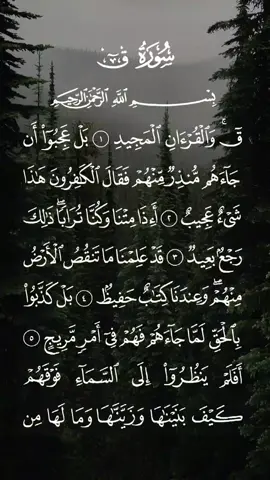 سُورَةُ قٓ
بِسْمِ اللَّهِ الرَّحْمَٰنِ الرَّحِيمِ
قٓ ۚ وَالْقُرْءَانِ الْمَجِيدِ ١ بَلْ عَجِبُوٓا۟ أَن
جَآءَهُم مُّنذِرٌ مِّنْهُمْ فَقَالَ الْكَٰفِرُونَ هَٰذَا
شَىْءٌ عَجِيبٌ ٢ أَءِذَا مِتْنَا وَكُنَّا تُرَابًا ۖ ذَٰلِكَ
رَجْعٌۢ بَعِيدٌ ٣ قَدْ عَلِمْنَا مَا تَنقُصُ الْأَرْضُ
مِنْهُمْ ۖ وَعِندَنَا كِتَٰبٌ حَفِيظٌۢ ٤ بَلْ كَذَّبُوا۟
بِالْحَقِّ لَمَّا جَآءَهُمْ فَهُمْ فِىٓ أَمْرٍ مَّرِيجٍ ٥
أَفَلَمْ يَنظُرُوٓا۟ إِلَى السَّمَآءِ فَوْقَهُمْ
كَيْفَ بَنَيْنَٰهَا وَزَيَّنَّٰهَا وَمَا لَهَا مِن